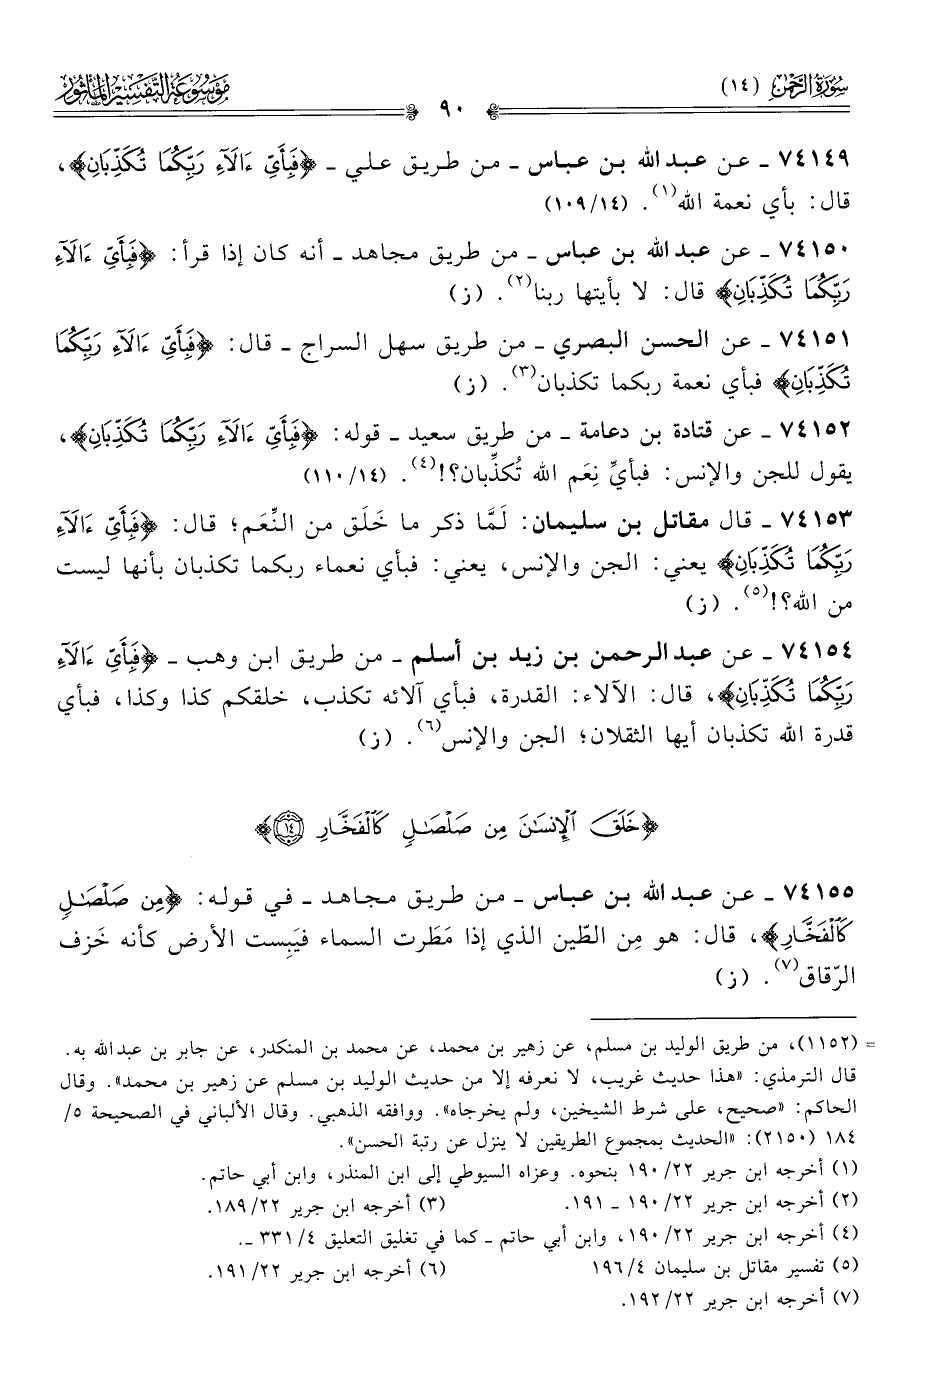 سُورَةُ الرَّحْمٰن (١٤)
٩٠
مَوْسُوعَةُ التَّفْسِيرِ الْمَأْثُور
٧٤١٤٩ ـ عن عبد الله بن عباس ـ من طريق علي ـ ﴿فَبِأَيِّ ءَالَآءِ رَبِّكُمَا تُكَذِّبَانِ﴾،
قال: بأي نعمة الله(١). (١٠٩/١٤)
٧٤١٥٠ ـ عن عبد الله بن عباس ـ من طريق مجاهد ـ أنه كان إذا قرأ: ﴿فَبِأَيِّ ءَالَآءِ
رَبِّكُمَا تُكَذِّبَانِ﴾ قال: لا بأيتها ربنا(٢). (ز)
٧٤١٥١ ـ عن الحسن البصري ـ من طريق سهل السراج ـ قال: ﴿فَبِأَيِّ ءَالَآءِ رَبِّكُمَا
تُكَذِّبَانِ﴾ فبأي نعمة ربكما تكذبان(٣). (ز)
٧٤١٥٢ ـ عن قتادة بن دعامة ـ من طريق سعيد ـ قوله: ﴿فَبِأَيِّ ءَالَآءِ رَبِّكُمَا تُكَذِّبَانِ﴾،
يقول للجن والإنس: فبأيِّ نِعَم الله تُكذِّبان؟!(٤). (١١٠/١٤)
٧٤١٥٣ ـ قال مقاتل بن سليمان: لَمَّا ذكر ما خَلَق من النِّعَم؛ قال: ﴿فَبِأَيِّ ءَالَآءِ
رَبِّكُمَا تُكَذِّبَانِ﴾ يعني: الجن والإنس، يعني: فبأي نعماء ربكما تكذبان بأنها ليست
من الله؟!(٥). (ز)
٧٤١٥٤ ـ عن عبد الرحمن بن زيد بن أسلم ـ من طريق ابن وهب ـ ﴿فَبِأَيِّ ءَالَآءِ
رَبِّكُمَا تُكَذِّبَانِ﴾، قال: الآلاء: القدرة، فبأي آلائه تكذب، خلقكم كذا وكذا، فبأي
قدرة الله تكذبان أيها الثقلان؛ الجن والإنس(٦). (ز)
﴿خَلَقَ ٱلْإِنسَٰنَ مِن صَلْصَٰلٍ كَٱلْفَخَّارِ ١٤﴾
٧٤١٥٥ ـ عن عبد الله بن عباس ـ من طريق مجاهد ـ في قوله: ﴿مِن صَلْصَٰلٍ
كَٱلْفَخَّارِ﴾، قال: هو مِن الطّين الذي إذا مَطَرت السماء فيَبِست الأرض كأنه خَزف
الرّقاق(٧). (ز)
= (١١٥٢)، من طريق الوليد بن مسلم، عن زهير بن محمد، عن محمد بن المنكدر، عن جابر بن عبد الله به.
قال الترمذي: «هذا حديث غريب، لا نعرفه إلا من حديث الوليد بن مسلم عن زهير بن محمد». وقال
الحاكم: «صحيح، على شرط الشيخين، ولم يخرجاه». ووافقه الذهبي. وقال الألباني في الصحيحة ٥/
١٨٤ (٢١٥٠): «الحديث بمجموع الطريقين لا ينزل عن رتبة الحسن».
(١) أخرجه ابن جرير ١٩٠/٢٢ بنحوه. وعزاه السيوطي إلى ابن المنذر، وابن أبي حاتم.
(٢) أخرجه ابن جرير ١٩٠/٢٢ ـ ١٩١. (٣) أخرجه ابن جرير ١٨٩/٢٢.
(٤) أخرجه ابن جرير ١٩٠/٢٢، وابن أبي حاتم ـ كما في تغليق التعليق ٣٣١/٤ ـ.
(٥) تفسير مقاتل بن سليمان ١٩٦/٤ (٦) أخرجه ابن جرير ١٩١/٢٢.
(٧) أخرجه ابن جرير ١٩٢/٢٢.